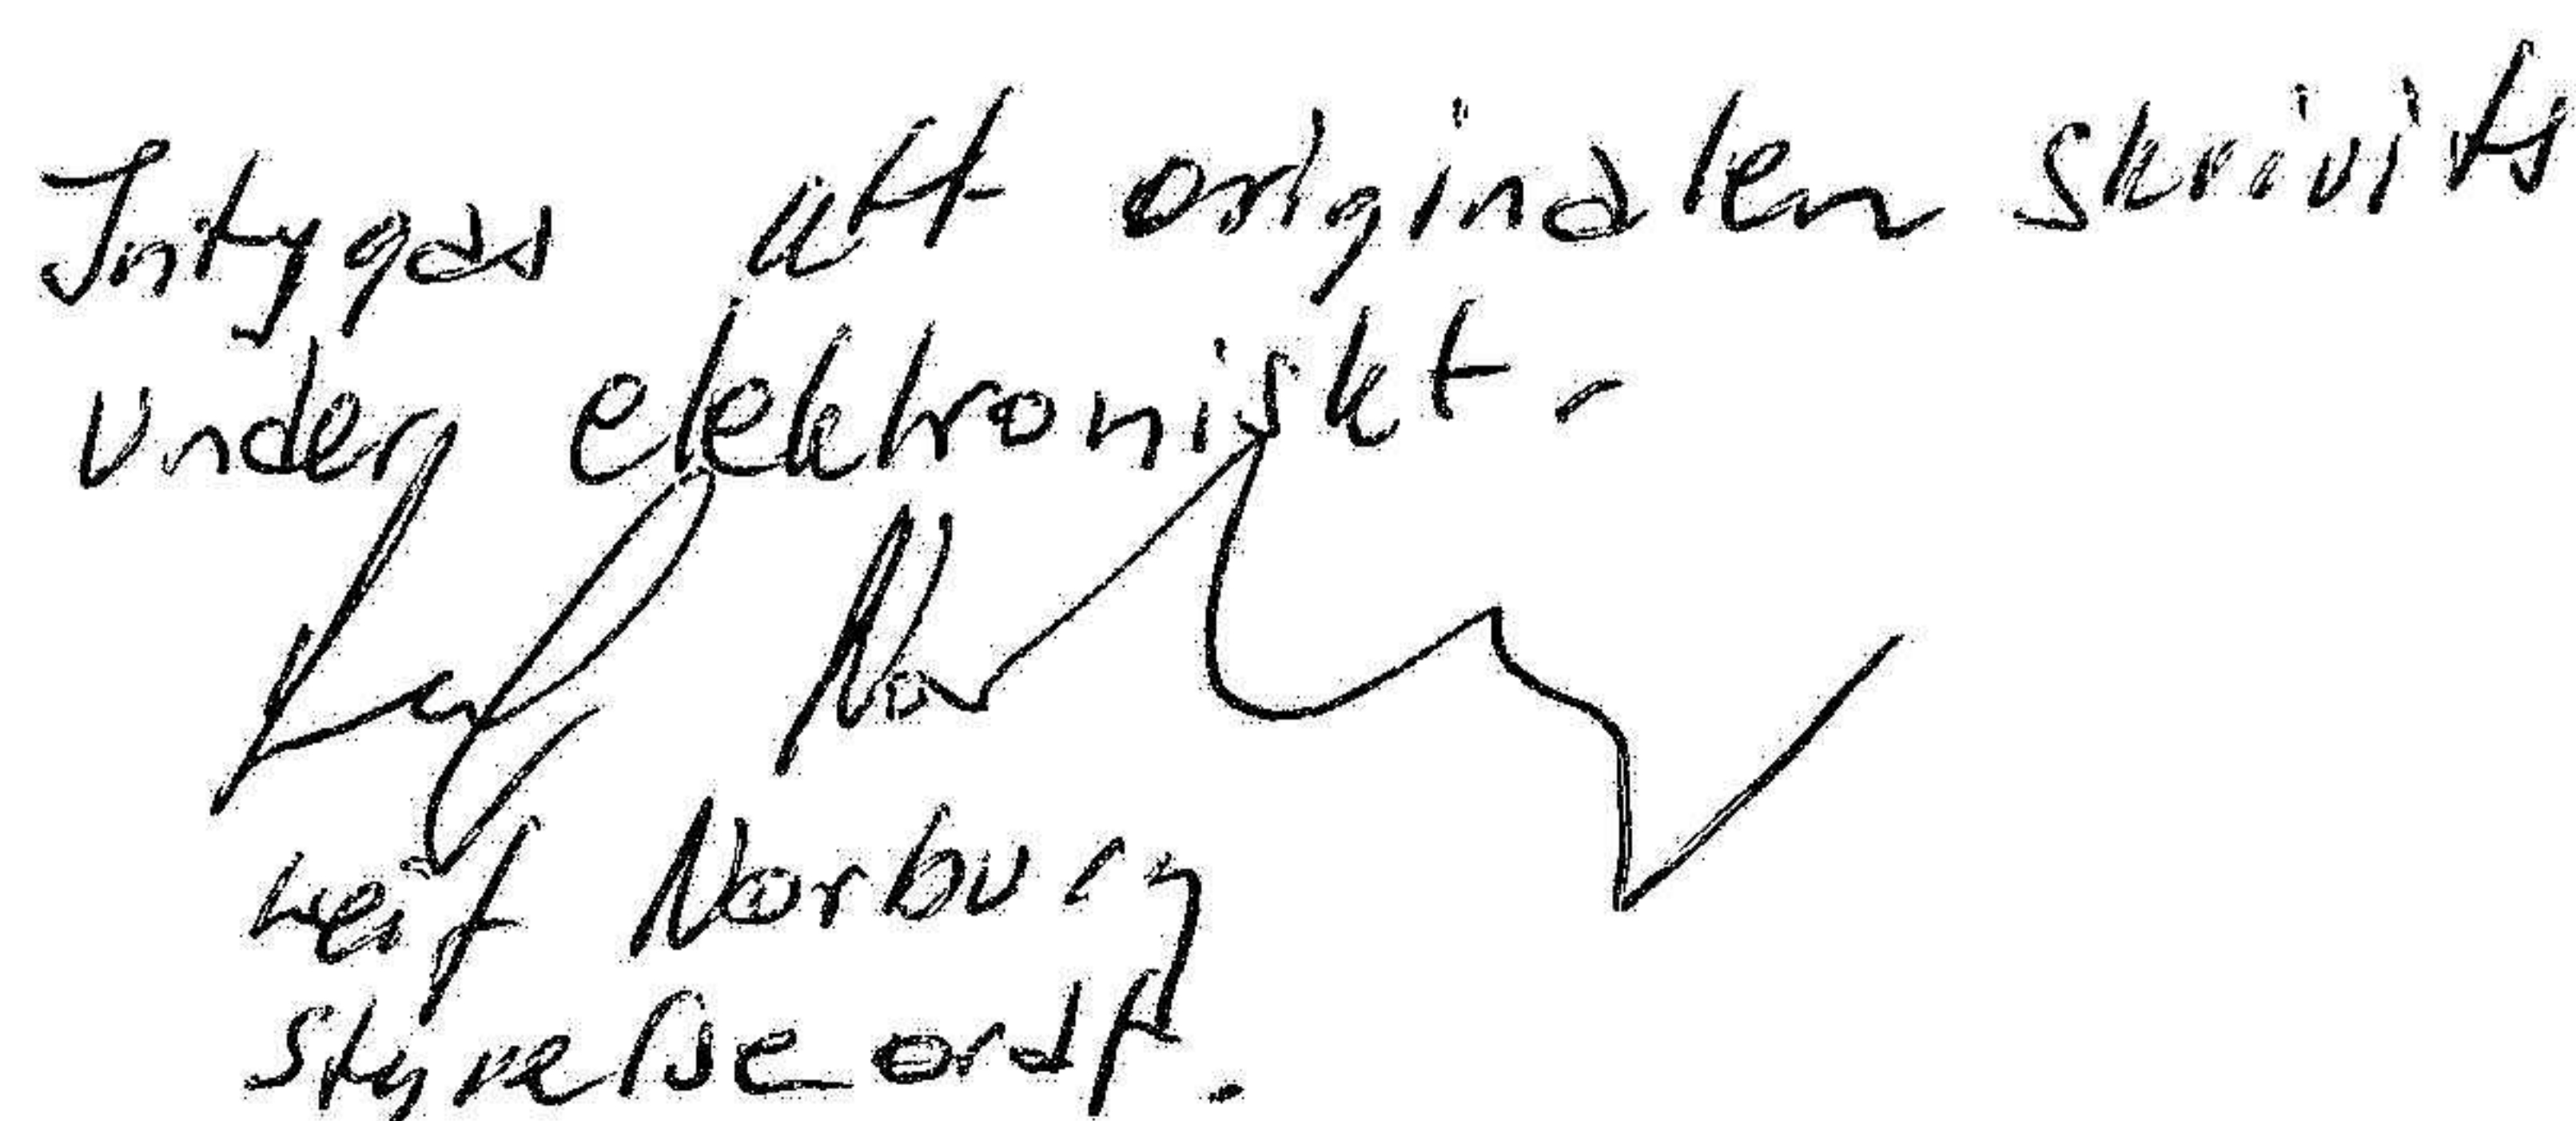 Intygas att originalen skrivits
under elektroniskt.
Leif Norburg
Styrelseordf.